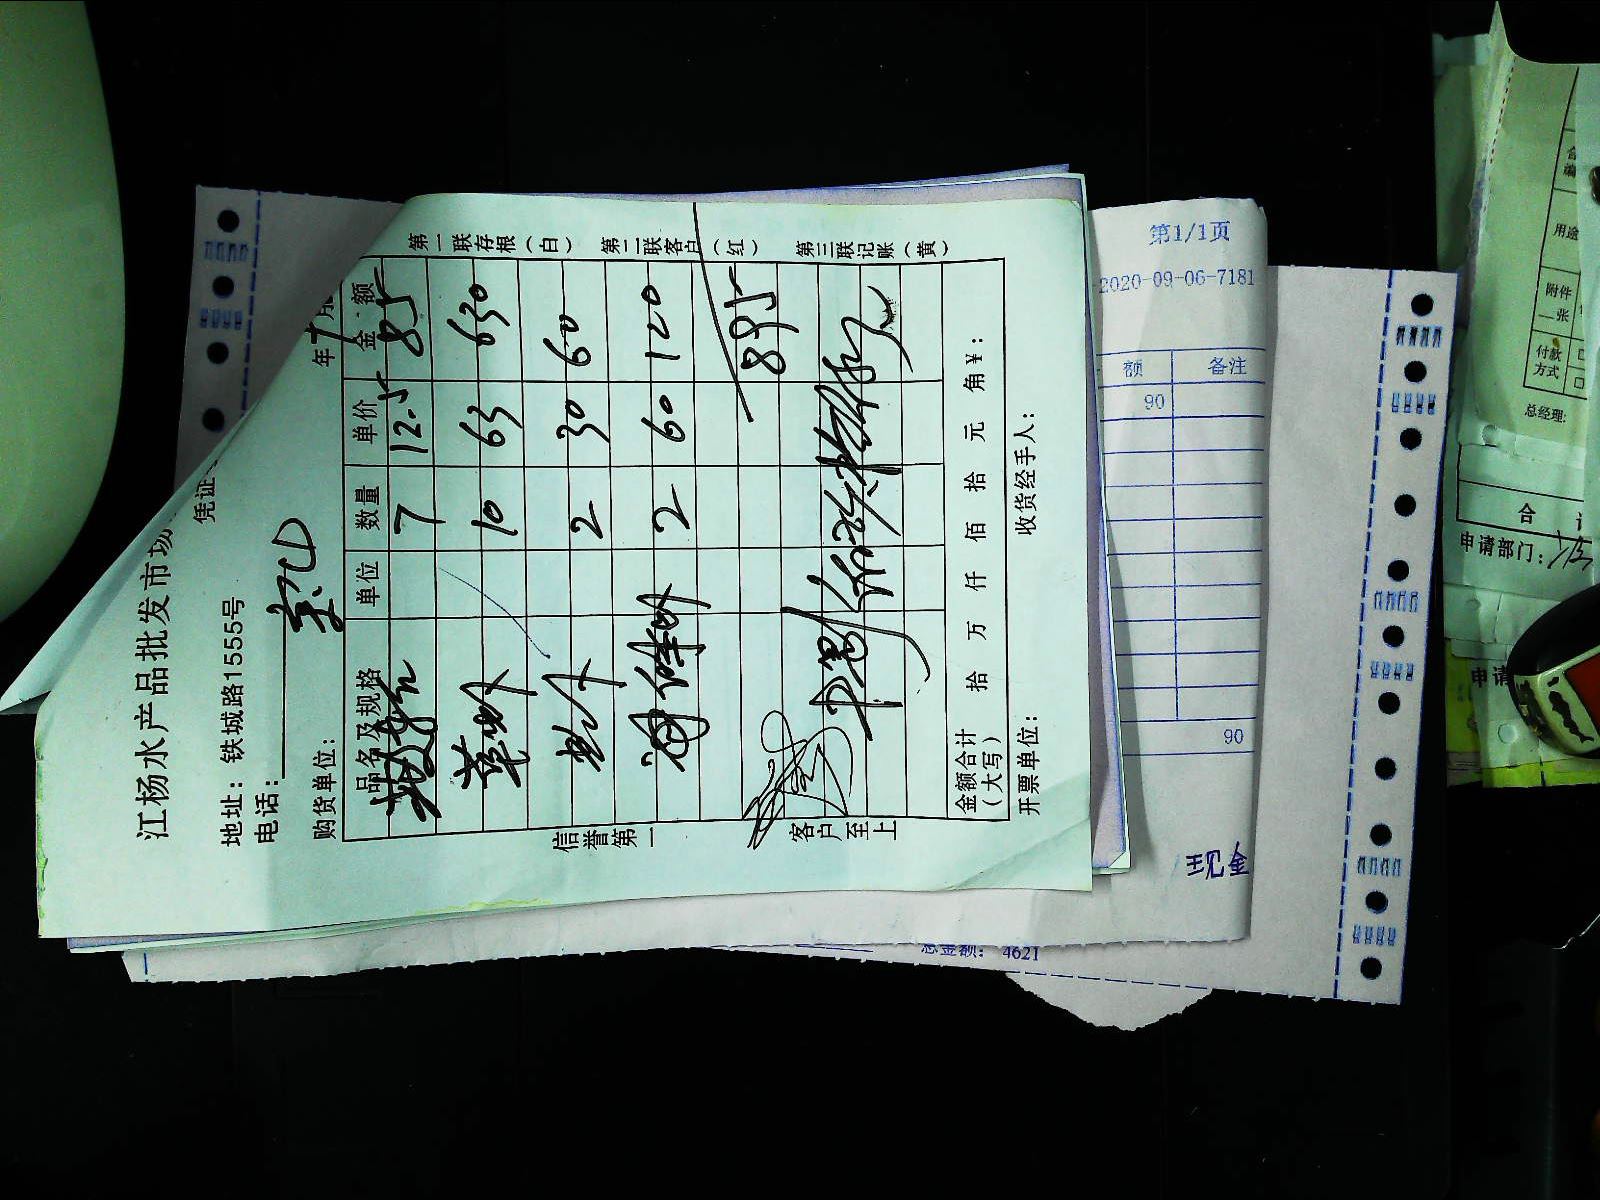 江杨水产品批发市场
凭证
地址：铁城路1555号
电话：
购货单位：
年 月
品名及规格 单位 数量 单价 金额
7 12.5 85
草虾 10 63 630
2 30 60
2 60 120
895
金额合计（大写） 拾 万 仟 佰 拾 元 角 ¥：
开票单位： 收货经手人：
第一联存根（白） 第二联客户（红） 第三联记账（黄）
信誉第一
客户至上
第1/1页
2020-09-06-7181
额 备注
90
90
现金
总金额： 4621
用途
附件
一张
付款
方式
总经理:
合
申请部门：
申请